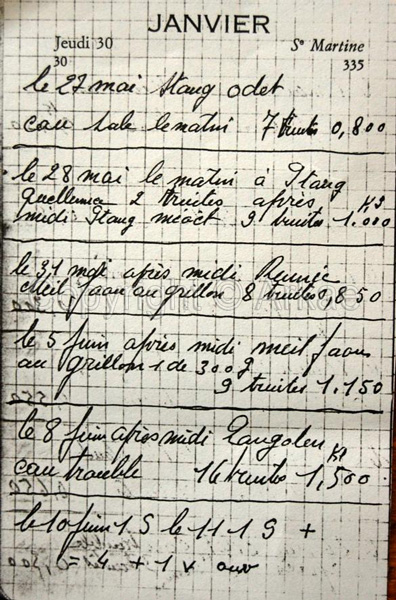 JANVIER
Jeudi 30 Se Martine
30 335
le 27 mai Stang odet
eau sale le matin 7 truites 0,800
le 28 mai le matin à Stang
Quellenec 2 truites après Kg
midi Stang 9 truites 1.000
le 31 mai après midi
Meil faou au grillon 8 truites 0,850
le 5 juin après midi meil faou
au grillon 1 de 300g
9 truites 1.150
le 8 juin après midi Langolen Kg
eau trouble 16 truites 1,500
le 10 juin 1 S le 11 1 S +
= 4 + 1 v